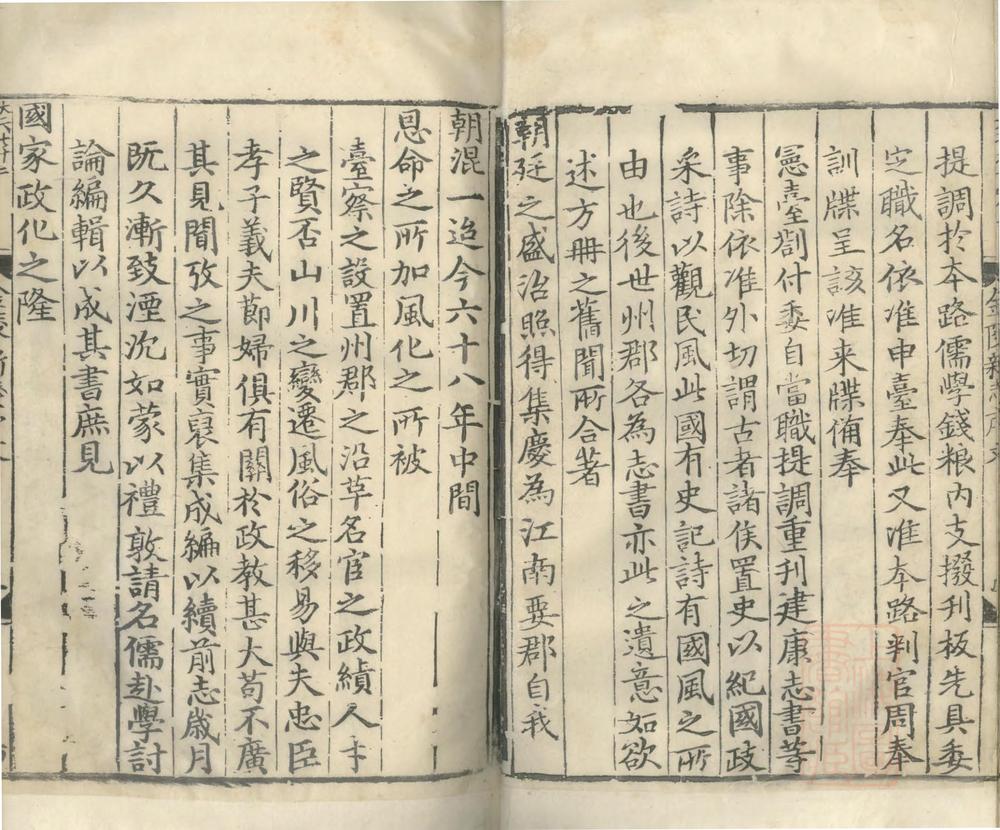 提調於本路儒學錢粮內支撥刊板先具委
定職名依准申臺奉此又准本路判官周奉
訓牒呈該准来牒備奉
憲臺劄付委自當職提調重刊建康志書等
事除依准外切謂古者諸侯置史以紀國政
采詩以觀民風此國有史記詩有國風之所
由也後世州郡各為志書亦此之遺意如欲
述方冊之舊聞所合著
朝廷之盛治照得集慶為江南要郡自我
朝混一迨今六十八年中間
恩命之所加風化之所被
臺察之設置州郡之沿革名官之政績人才
之賢否山川之變遷風俗之移易與夫忠臣
孝子義夫節婦俱有關於政教甚大苟不廣
其見聞攷之事實裒集成編以續前志歲月
既久漸致湮沉如蒙以禮敦請名儒赴學討
論編輯以成其書庶見
國家政化之隆